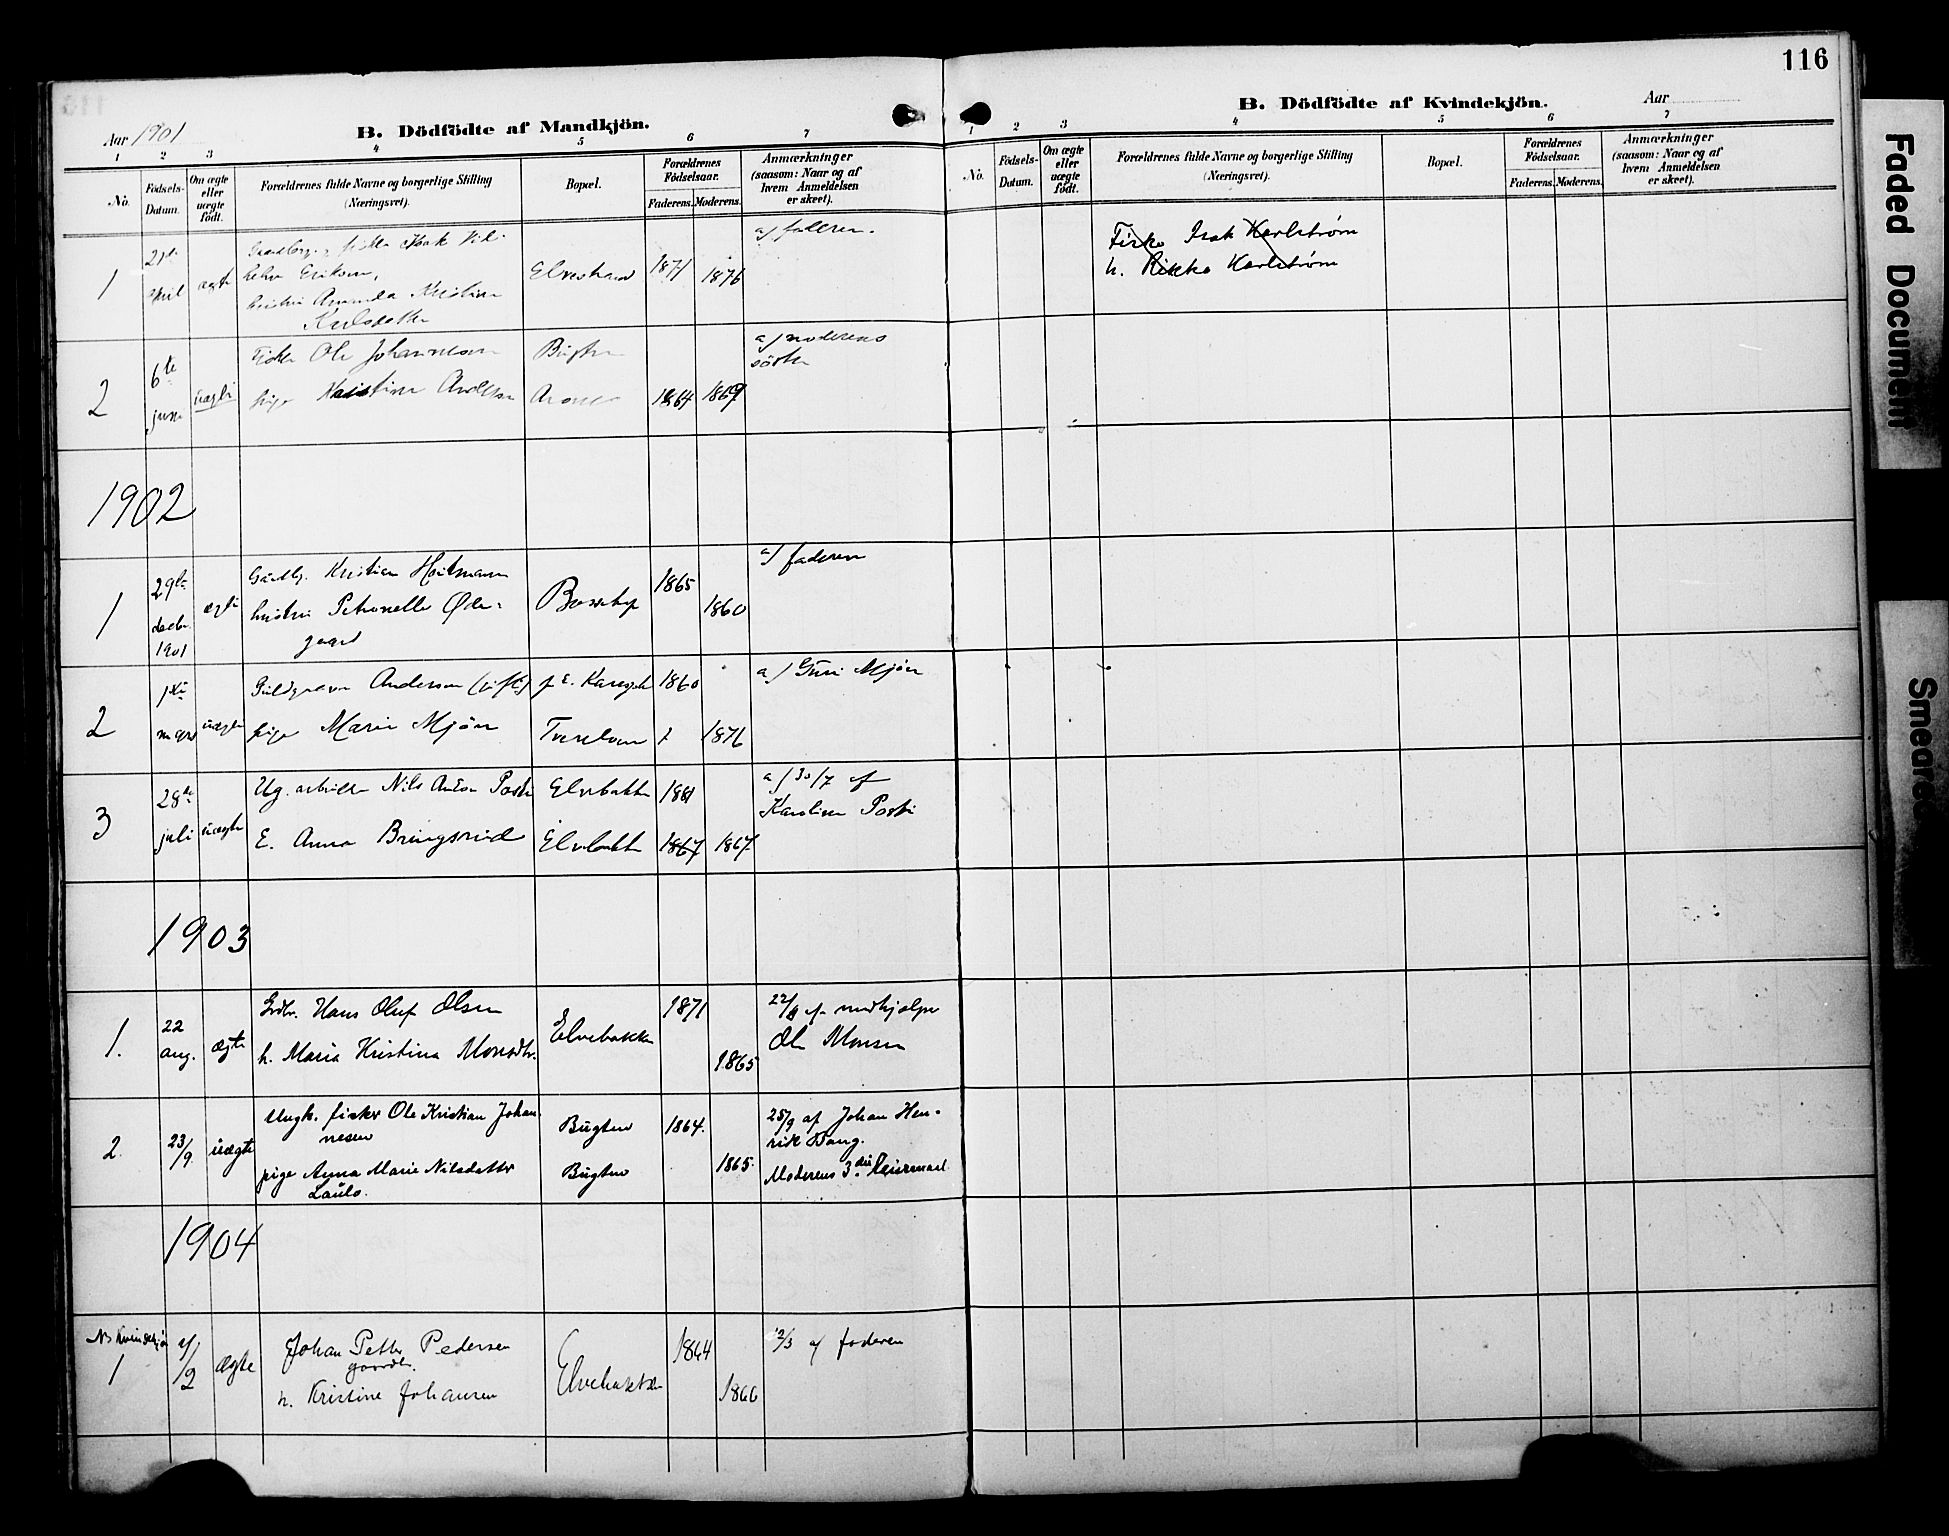 116
Aar 1901
B. Dödfödte af Mandkjön.
1 2 3 4 5 6 7
No.
Födsels-
Datum.
Om ægte
eller
uægte
födt.
Forældrenes fulde Navne og borgerlige Stilling
(Næringsvei).
Bopæl.
Forældrenes
Födselsaar.
Faderens. Moderens.
Anmærkninger
(saasom: Naar og af
hvem Anmeldelsen
er skeet).
1
april
ægte
Eriksen,
hustru Amanda Kristine
Karlsdatter
Elvestrand
1871
1876
a/ faderen.
2
6te
juni
uægte
Fisker Ole Johannesen
pige Kristine
Bugten
1864
1869
a/ moderens
søster
1902
1
29de
decbr.
1901
ægte
Gårdbr. Kristian Heitmann
hustru Petronelle Øde-
gaard
Bossekop
1865
1860
a/ faderen
2
1ste
mars
uægte
Guldgraver Anderson (gift)
pige Marie Mjøen
p. t. Karasjok
Tverelven
1860
?
1876
a/ Guri Mjøen
3
28de
juli
uægte
Ug. arbeider Nils Anton Posti
E. Anna Bringsrud
Elvebakken
Elvebakken
1881
1867
1867
a/ 30/7 af
Karoline Posti
1903
1.
22
aug.
ægte
Grdbr. Hans Oluf Olsen
h. Maria Kristina Monsdtr.
Elvebakken
1871
1865
22/8 af medhjælper
Ole Monsen
2.
23/9.
uægte
Ungk. fisker Ole Kristian Johan-
nesen
pige Anna Marie Nilsdatter
Laulo.
Bugten
Bugten
1864.
1865.
25/9 af Johan Hen-
rik Bang.
Moderens 3die Leiermaal
1904
NB Kvindekjøn
1
/2
ægte
Johan Petter Pedersen
gaardbr.
h. Kristine Johansen
Elvebakken
1864
1866
12/3 af faderen
B. Dödfödte af Kvindekjön.
Aar
1 2 3 4 5 6 7
No.
Födsels-
Datum.
Om ægte
eller
uægte
födt.
Forældrenes fulde Navne og borgerlige Stilling
(Næringsvei).
Bopæl.
Forældrenes
Födselsaar.
Faderens. Moderens.
Anmærkninger
(saasom: Naar og af
hvem Anmeldelsen
er skeet).
Fisker Isak Karlstrøm
h. Rikka Karlstrøm
Faded Document
Smeared